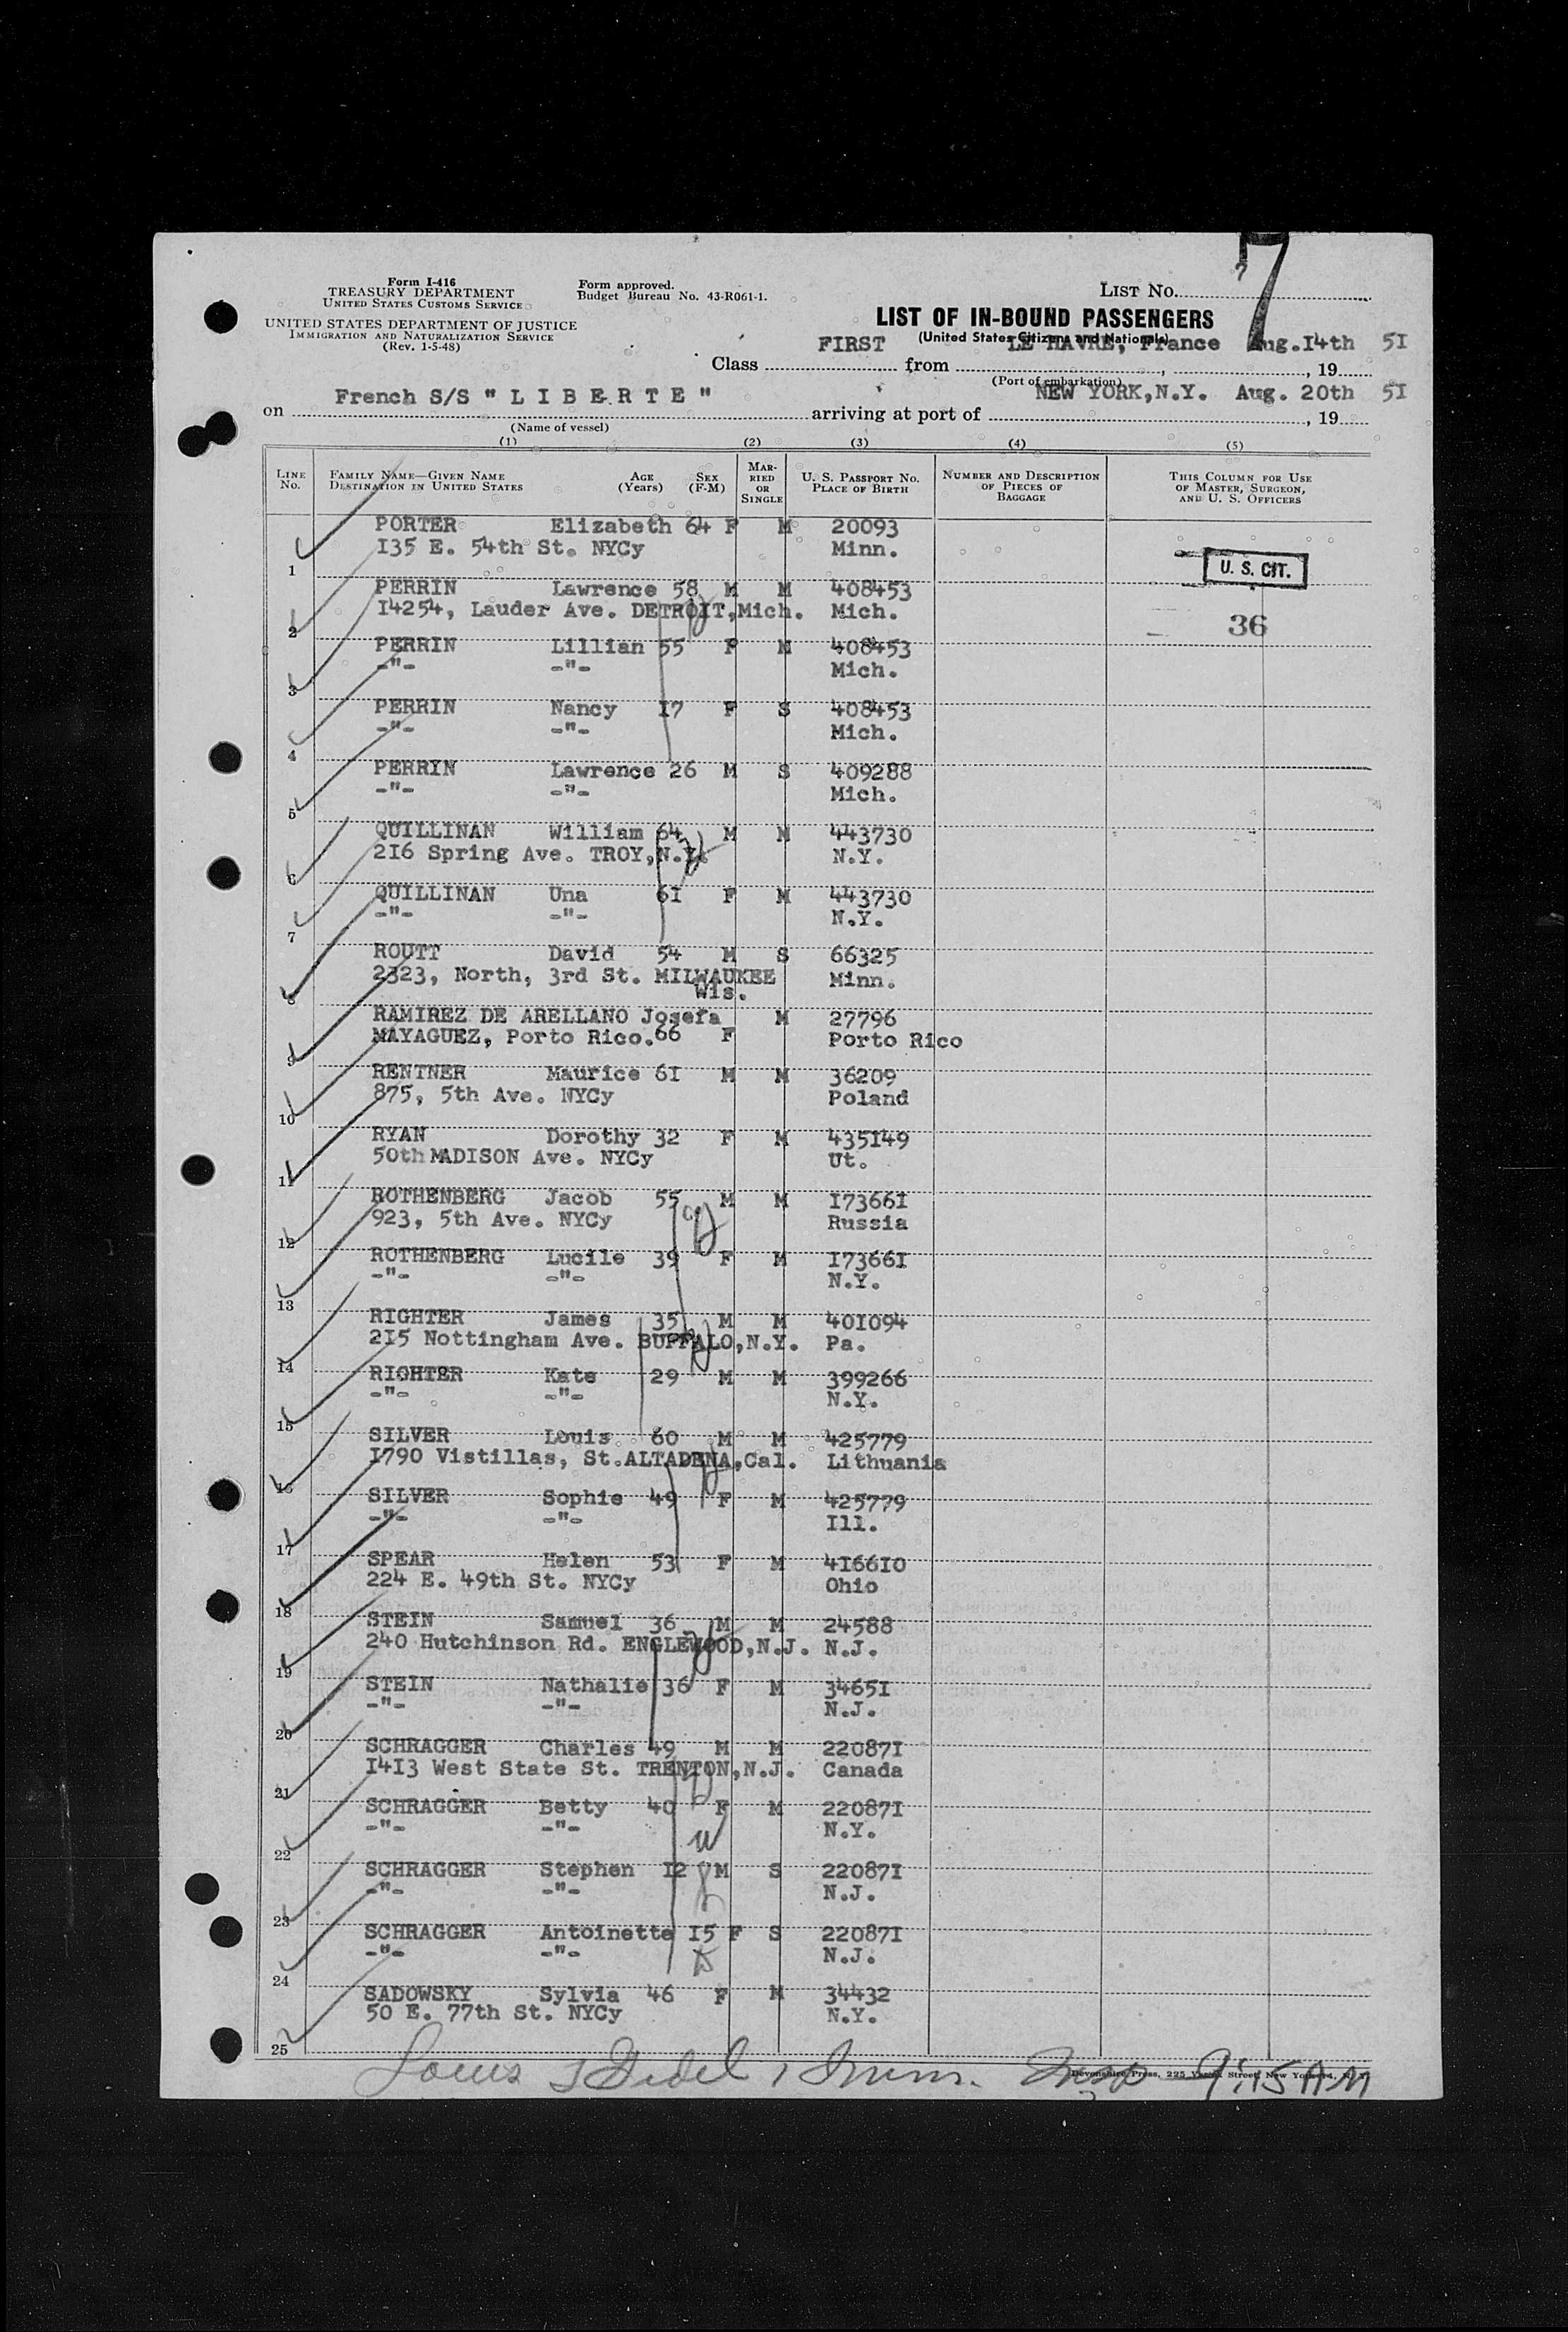 Form I-416
TREASURY DEPARTMENT
UNITED STATES CUSTOMS SERVICE
Form approved.
Budget Bureau No. 43-R061-1.
UNITED STATES DEPARTMENT OF JUSTICE
IMMIGRATION AND NATURALIZATION SERVICE
(Rev. 1-5-48)
LIST NO. 7
LIST OF IN-BOUND PASSENGERS
(United States Citizens and Nationals)
Class FIRST from LE HAVRE, France Aug.I4th, 19 5I
(Port of embarkation)
on French S/S " L I B E R T E " arriving at port of NEW YORK,N.Y. Aug. 20th, 19 5I
(Name of vessel)
(1) (2) (3) (4) (5)
LINE No. FAMILY NAME—GIVEN NAME DESTINATION IN UNITED STATES AGE (Years) SEX (F-M) MARRIED OR SINGLE U. S. PASSPORT NO. PLACE OF BIRTH NUMBER AND DESCRIPTION OF PIECES OF BAGGAGE THIS COLUMN FOR USE OF MASTER, SURGEON, AND U. S. OFFICERS
PORTER Elizabeth 64 F M 20093
I35 E. 54th St. NYCy Minn.
1
U. S. CIT.
PERRIN Lawrence 58 M M 408453
I4254, Lauder Ave. DETROIT,Mich. Mich.
36
2
PERRIN Lillian 55 F M 408453
-"- -"- Mich.
3
PERRIN Nancy I7 F S 408453
-"- -"- Mich.
4
PERRIN Lawrence 26 M S 409288
-"- -"- Mich.
5
QUILLINAN William 64 M M 443730
2I6 Spring Ave. TROY,N.Y. N.Y.
6
QUILLINAN Una 6I F M 443730
-"- -"- N.Y.
7
ROUTT David 54 M S 66325
2323, North, 3rd St. MILWAUKEE Minn.
Wis.
8
RAMIREZ DE ARELLANO Josefa M 27796
MAYAGUEZ, Porto Rico. 66 F Porto Rico
9
RENTNER Maurice 6I M M 36209
875, 5th Ave. NYCy Poland
10
RYAN Dorothy 32 F M 435I49
50th MADISON Ave. NYCy Ut.
11
ROTHENBERG Jacob 55 M M I7366I
923, 5th Ave. NYCy Russia
12
ROTHENBERG Lucile 39 F M I7366I
-"- -"- N.Y.
13
RIGHTER James 35 M M 40I094
2I5 Nottingham Ave. BUFFALO,N.Y. Pa.
14
RIGHTER Kate 29 M M 399266
-"- -"- N.Y.
15
SILVER Louis 60 M M 425779
I790 Vistillas, St.ALTADENA,Cal. Lithuania
16
SILVER Sophie 49 F M 425779
-"- -"- Ill.
17
SPEAR Helen 53 F M 4I66I0
224 E. 49th St. NYCy Ohio
18
STEIN Samuel 36 M M 24588
240 Hutchinson Rd. ENGLEWOOD,N.J. N.J.
19
STEIN Nathalie 36 F M 3465I
-"- -"- N.J.
20
SCHRAGGER Charles 49 M M 22087I
I4I3 West State St. TRENTON,N.J. Canada
21
SCHRAGGER Betty 40 F M 22087I
-"- -"- N.Y.
22
SCHRAGGER Stephen I2 M S 22087I
-"- -"- N.J.
23
SCHRAGGER Antoinette I5 F S 22087I
-"- -"- N.J.
24
SADOWSKY Sylvia 46 F M 34432
50 E. 77th St. NYCy N.Y.
25
Louis 9:15 AM
Devonshire Press, 225 Street, New York